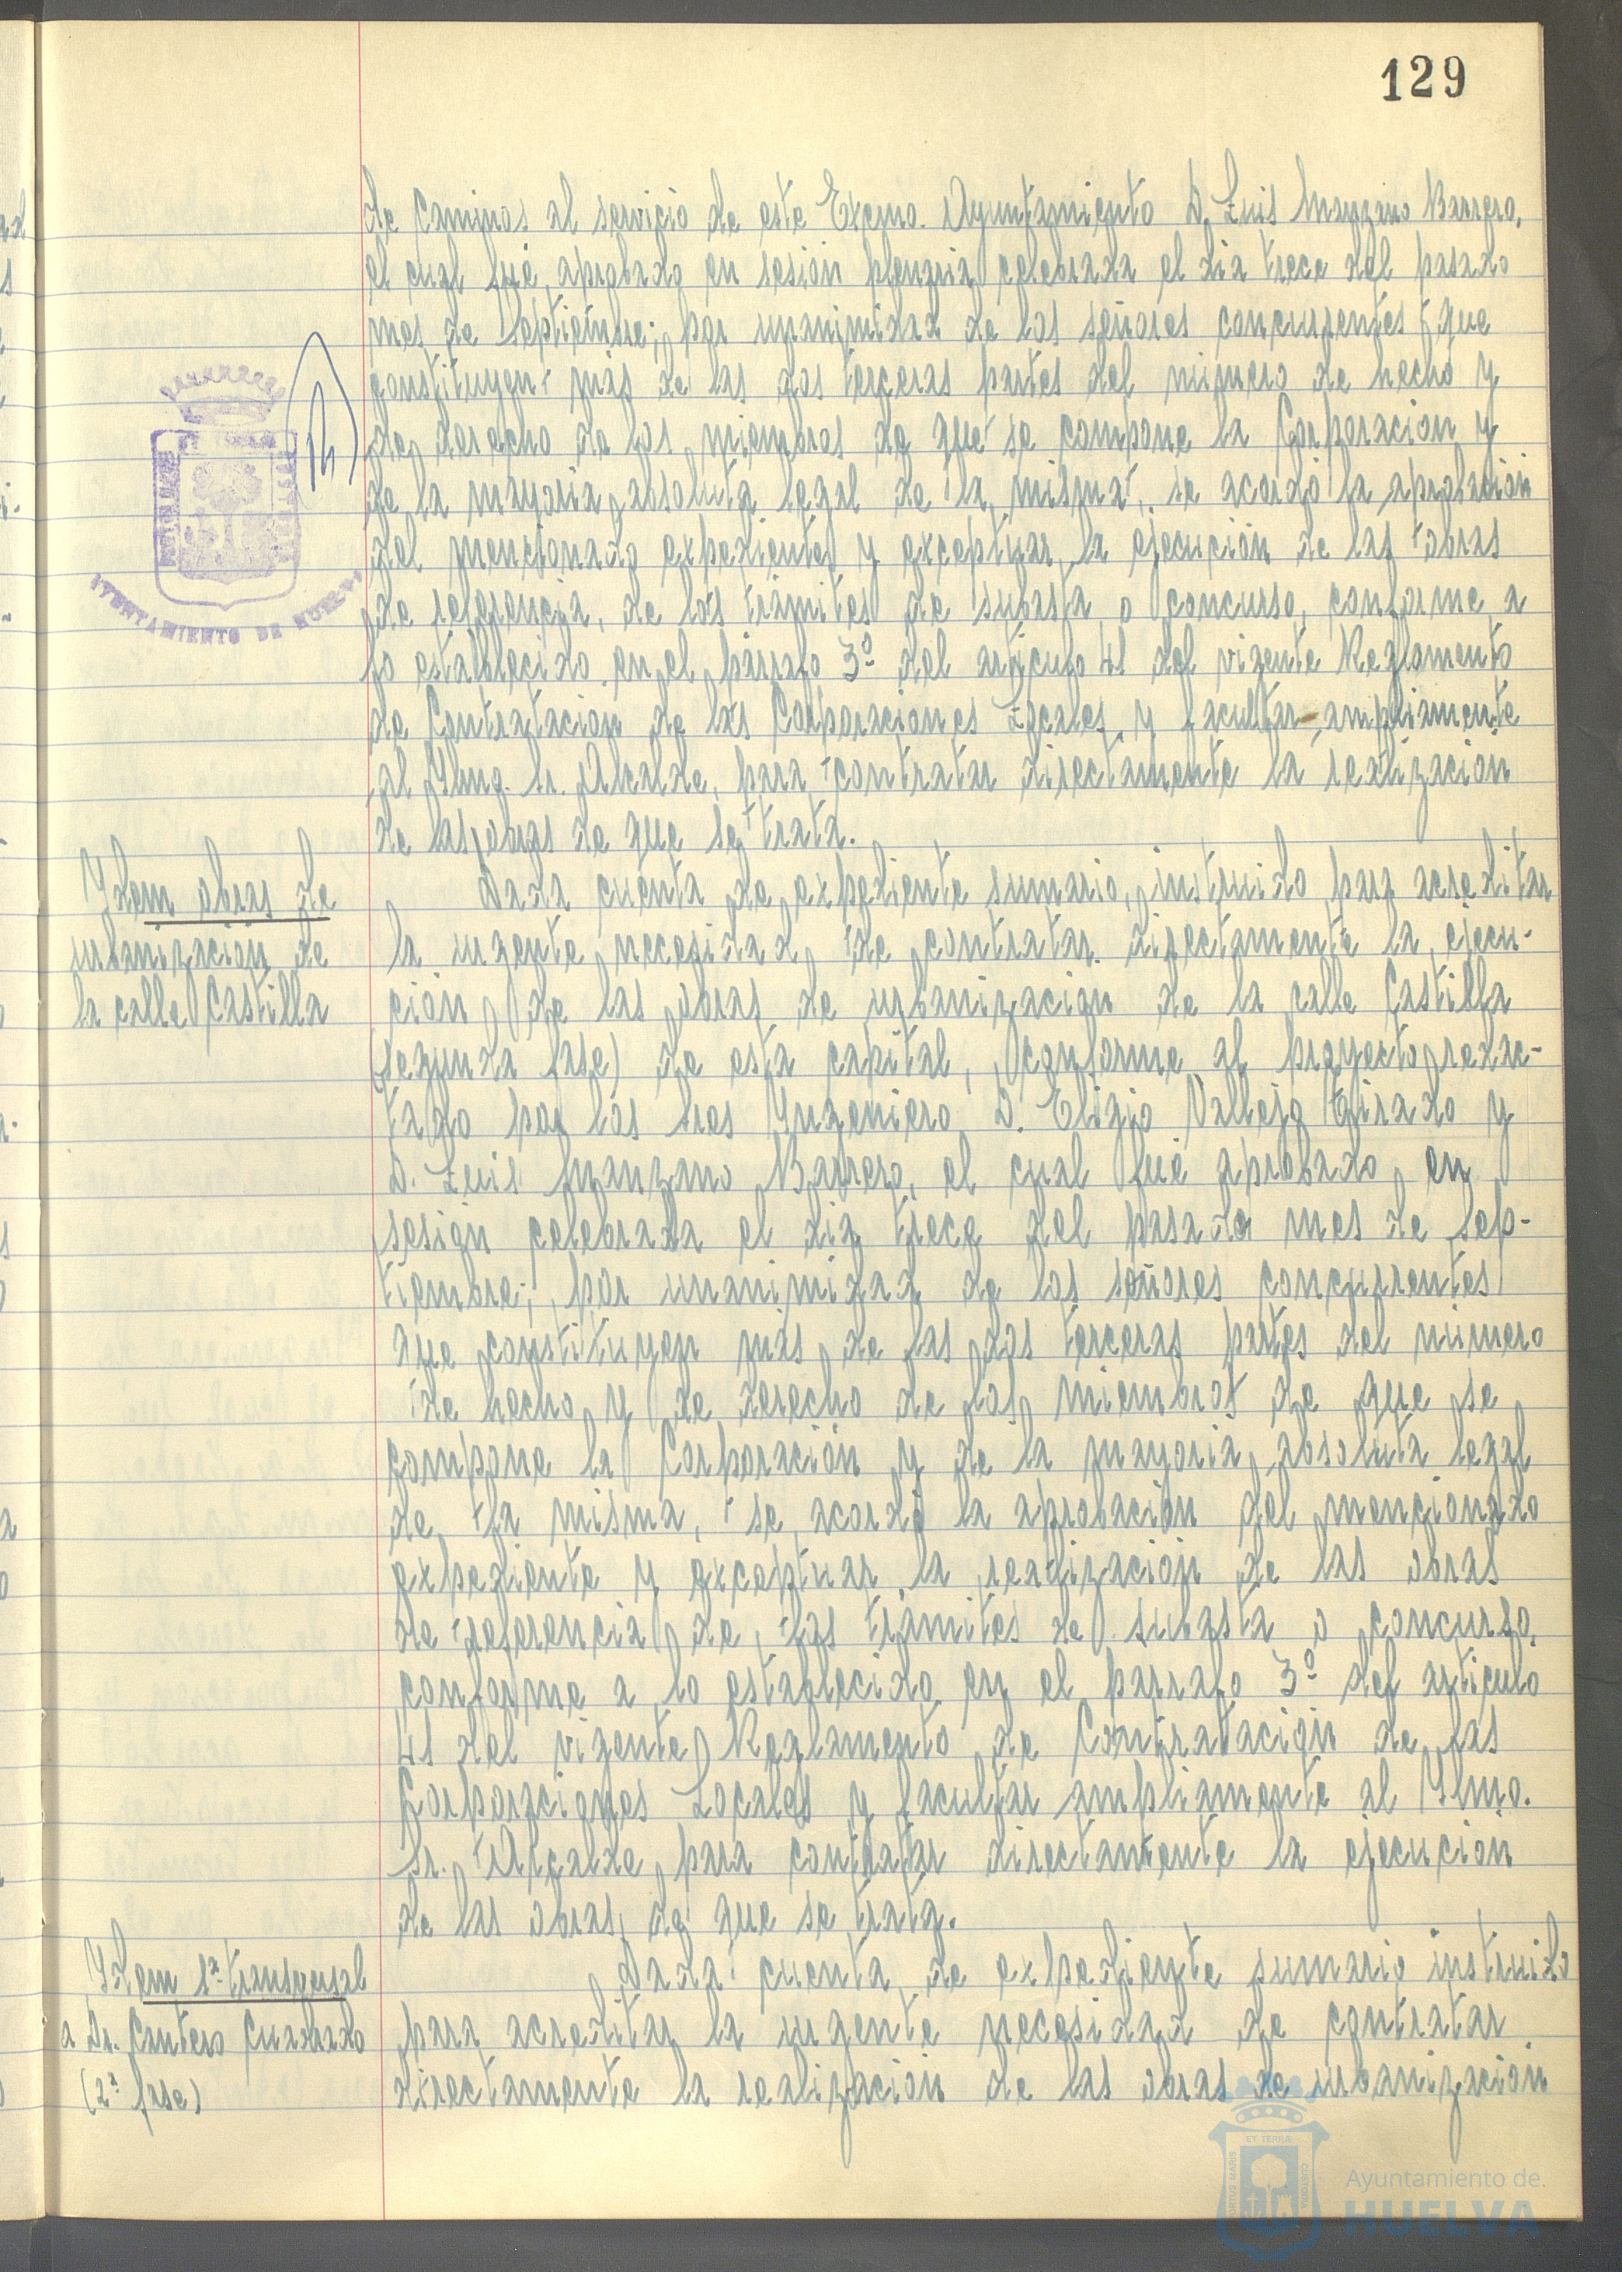 129
de Caminos al servicio de este Excmo. Ayuntamiento D. Luis Manzano Barrero,
el cual fué aprobado en sesión plenaria celebrada el dia trece del pasado
mes de Septiembre; por unanimidad de los señores concurrentes que
constituyen más de las dos terceras partes del número de hecho y
de derecho de los miembros de que se compone la Corporación y
de la mayoria absoluta legal de la misma, se acordó la aprobación
del mencionado expediente y exceptuar la ejecución de las obras
de referencia, de los trámites de subasta o concurso, conforme a
lo establecido en el párrafo 3º del articulo 41 del vigente Reglamento
de Contratación de las Corporaciones Locales y facultar ampliamente
al Ylmo. Sr. Alcalde, para contratar directamente la realización
de las obras de que se trata.
Ydem obras de
urbanización de
la calle Castilla
Dada cuenta de expediente sumario, instruido para acreditar
la urgente necesidad de contratar directamente la ejecu-
ción de las obras de urbanización de la calle Castilla
(segunda fase) de esta capital, conforme al proyecto redac-
tado por los Sres Yngeniero D. Eligio Vallejo Tirado y
D. Luis Manzano Barrero, el cual fué aprobado en
sesión celebrada el dia trece del pasado mes de Sep-
tiembre; por unanimidad de los señores concurrentes
que constituyen más de las dos terceras partes del número
de hecho y de derecho de los miembros de que se
compone la Corporación y de la mayoria absoluta legal
de la misma, se acordó la aprobación del mencionado
expediente y exceptuar la realización de las obras
de referencia de los trámites de subasta o concurso,
conforme a lo establecido en el párrafo 3º del articulo
41 del vigente Reglamento de Contratación de las
Corporaciones Locales y facultar ampliamente al Ylmo.
Sr. Alcalde para contratar directamente la ejecución
de las obras de que se trata.
Ydem 1ª transversal
a Dr. Cantero Cuadrado
(2ª fase)
Dada cuenta de expediente sumario instruido
para acreditar la urgente necesidad de contratar
directamente la realización de las obras de urbanización
AYUNTAMIENTO DE HUELVA
PORTUS MARIS ET TERRAE CUSTODIA
Ayuntamiento de
HUELVA